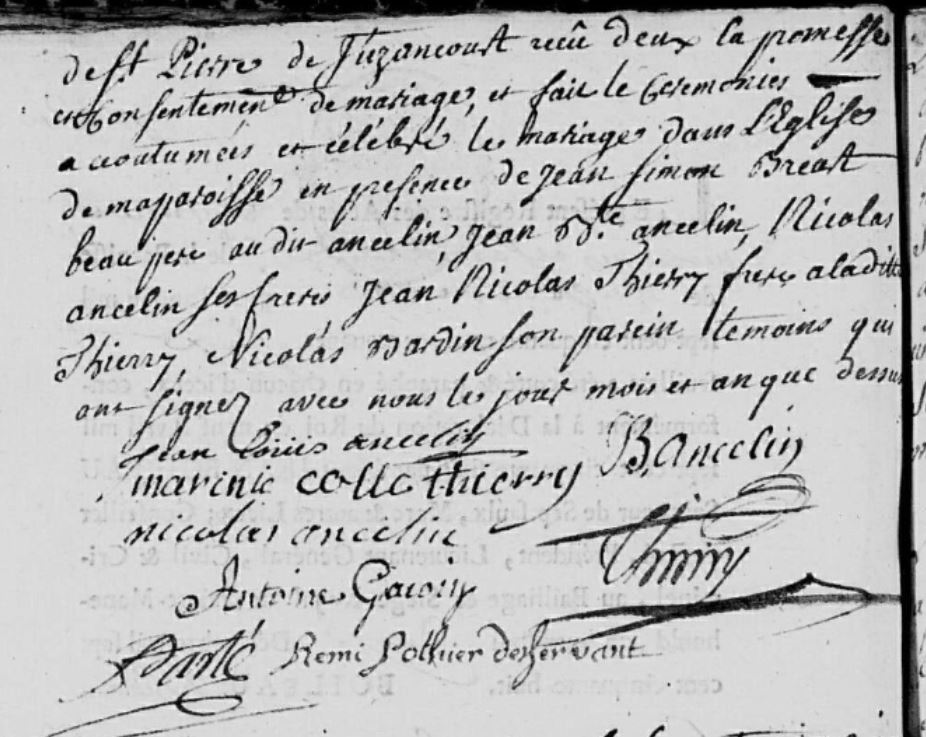 de St Pierre de Juzancourt recû deux la promesse
et Consentement de mariage, et fait le Ceremonies
acoutumeés et célébré le mariage dans L'Eglise
de maparoisse en presence de Jean Simon Breart
beau pere au dit ancelin, Jean Bte ancelin, Nicolas
ancelin ses freres Jean Nicolas Thierry frere a laditte
Thierry, Nicolas Bardin son parein temoins qui
ont signez avec nous les jour mois et an que dessus
Jean Louis ancelin
marenie colle thierry B, ancelin
nicolas ancelin
Thierry
Antoine
Remi Pothier desservant